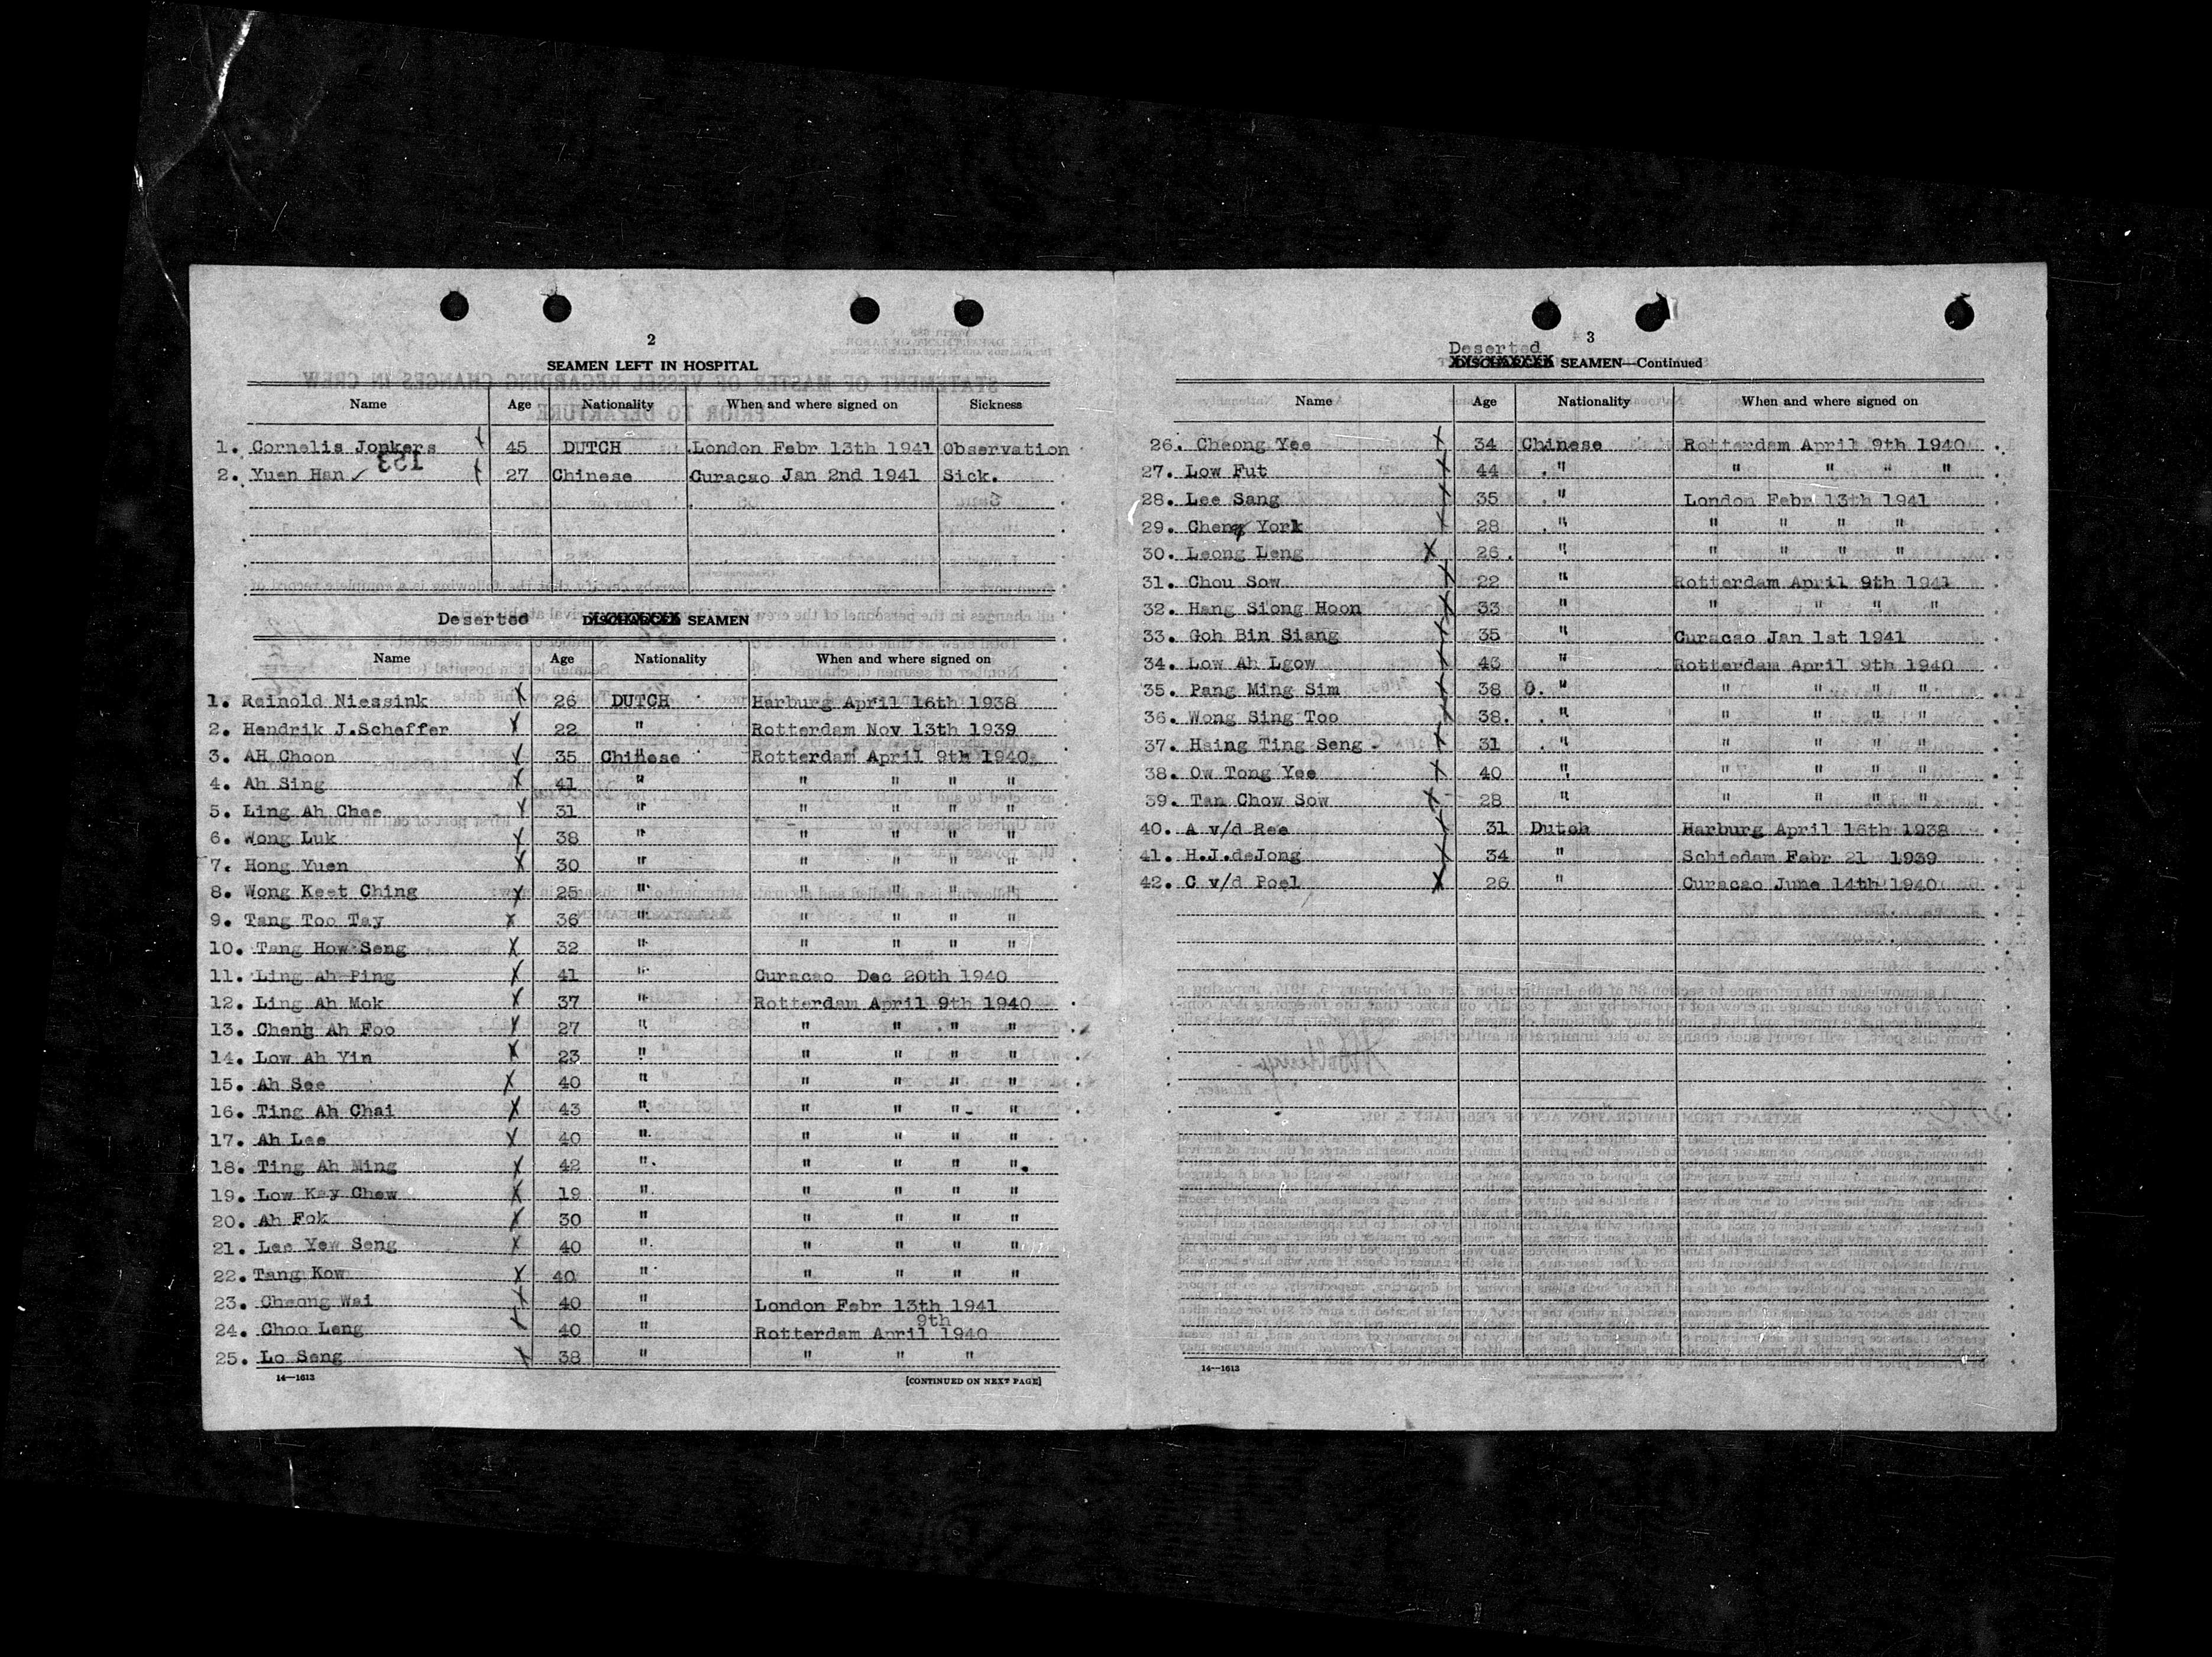 2
SEAMEN LEFT IN HOSPITAL
Name Age Nationality When and where signed on Sickness
1. Cornelis Jonkers 45 DUTCH London Febr 13th 1941 Observation
2. Yuen Han ✓ 27 Chinese Curacao Jan 2nd 1941 Sick.
153
Deserted DISCHARGED SEAMEN
Name Age Nationality When and where signed on
1. Reinold Niessink X 26 DUTCH Harburg April 16th 1938
2. Hendrik J.Scheffer X 22 " Rotterdam Nov 13th 1939
3. AH Choon X 35 Chinese Rotterdam April 9th 1940
4. Ah Sing X 41 " " " " "
5. Ling Ah Chee X 31 " " " " "
6. Wong Luk X 38 " " " " "
7. Hong Yuen X 30 " " " " "
8. Wong Keet Ching X 25 " " " " "
9. Tang Too Tay X 36 " " " " "
10. Tang How Seng X 32 " " " " "
11. Ling Ah Ping X 41 " Curacao Dec 20th 1940
12. Ling Ah Mok X 37 " Rotterdam April 9th 1940
13. Cheng Ah Foo X 27 " " " " "
14. Low Ah Yin X 23 " " " " "
15. Ah See X 40 " " " " "
16. Ting Ah Chai X 43 " " " " "
17. Ah Lee X 40 " " " " "
18. Ting Ah Ming X 42 " " " " "
19. Low Kay Chew X 19 " " " " "
20. Ah Fok X 30 " " " " "
21. Lee Yew Seng X 40 " " " " "
22. Tang Kow X 40 " " " " "
23. Cheong Wai X 40 " London Febr 13th 1941
24. Choo Leng X 40 " Rotterdam April 9th 1940
25. Lo Seng X 38 " " " "
14—1613 [CONTINUED ON NEXT PAGE]
3
Deserted
DISCHARGED SEAMEN—Continued
Name Age Nationality When and where signed on
26. Cheong Yee X 34 Chinese Rotterdam April 9th 1940
27. Low Fut X 44 " " " " "
28. Lee Sang X 35 " London Febr 13th 1941
29. Cheng York X 28 " " " " "
30. Leong Leng X 26 " " " " "
31. Chou Sow X 22 " Rotterdam April 9th 1941
32. Hang Siong Hoon X 33 " " " " "
33. Goh Bin Siang X 35 " Curacao Jan 1st 1941
34. Low Ah Lgow X 43 " Rotterdam April 9th 1940
35. Pang Ming Sim X 38 0. " " " " "
36. Wong Sing Too X 38. " " " " "
37. Hsing Ting Seng X 31 " " " " "
38. Ow Tong Yee X 40 " " " " "
39. Tan Chow Sow X 28 " " " " "
40. A v/d Ree X 31 Dutch Harburg April 16th 1938
41. H.J.deJong X 34 " Schiedam Febr 21 1939
42. C v/d Poel X 26 " Curacao June 14th 1940
14—1613